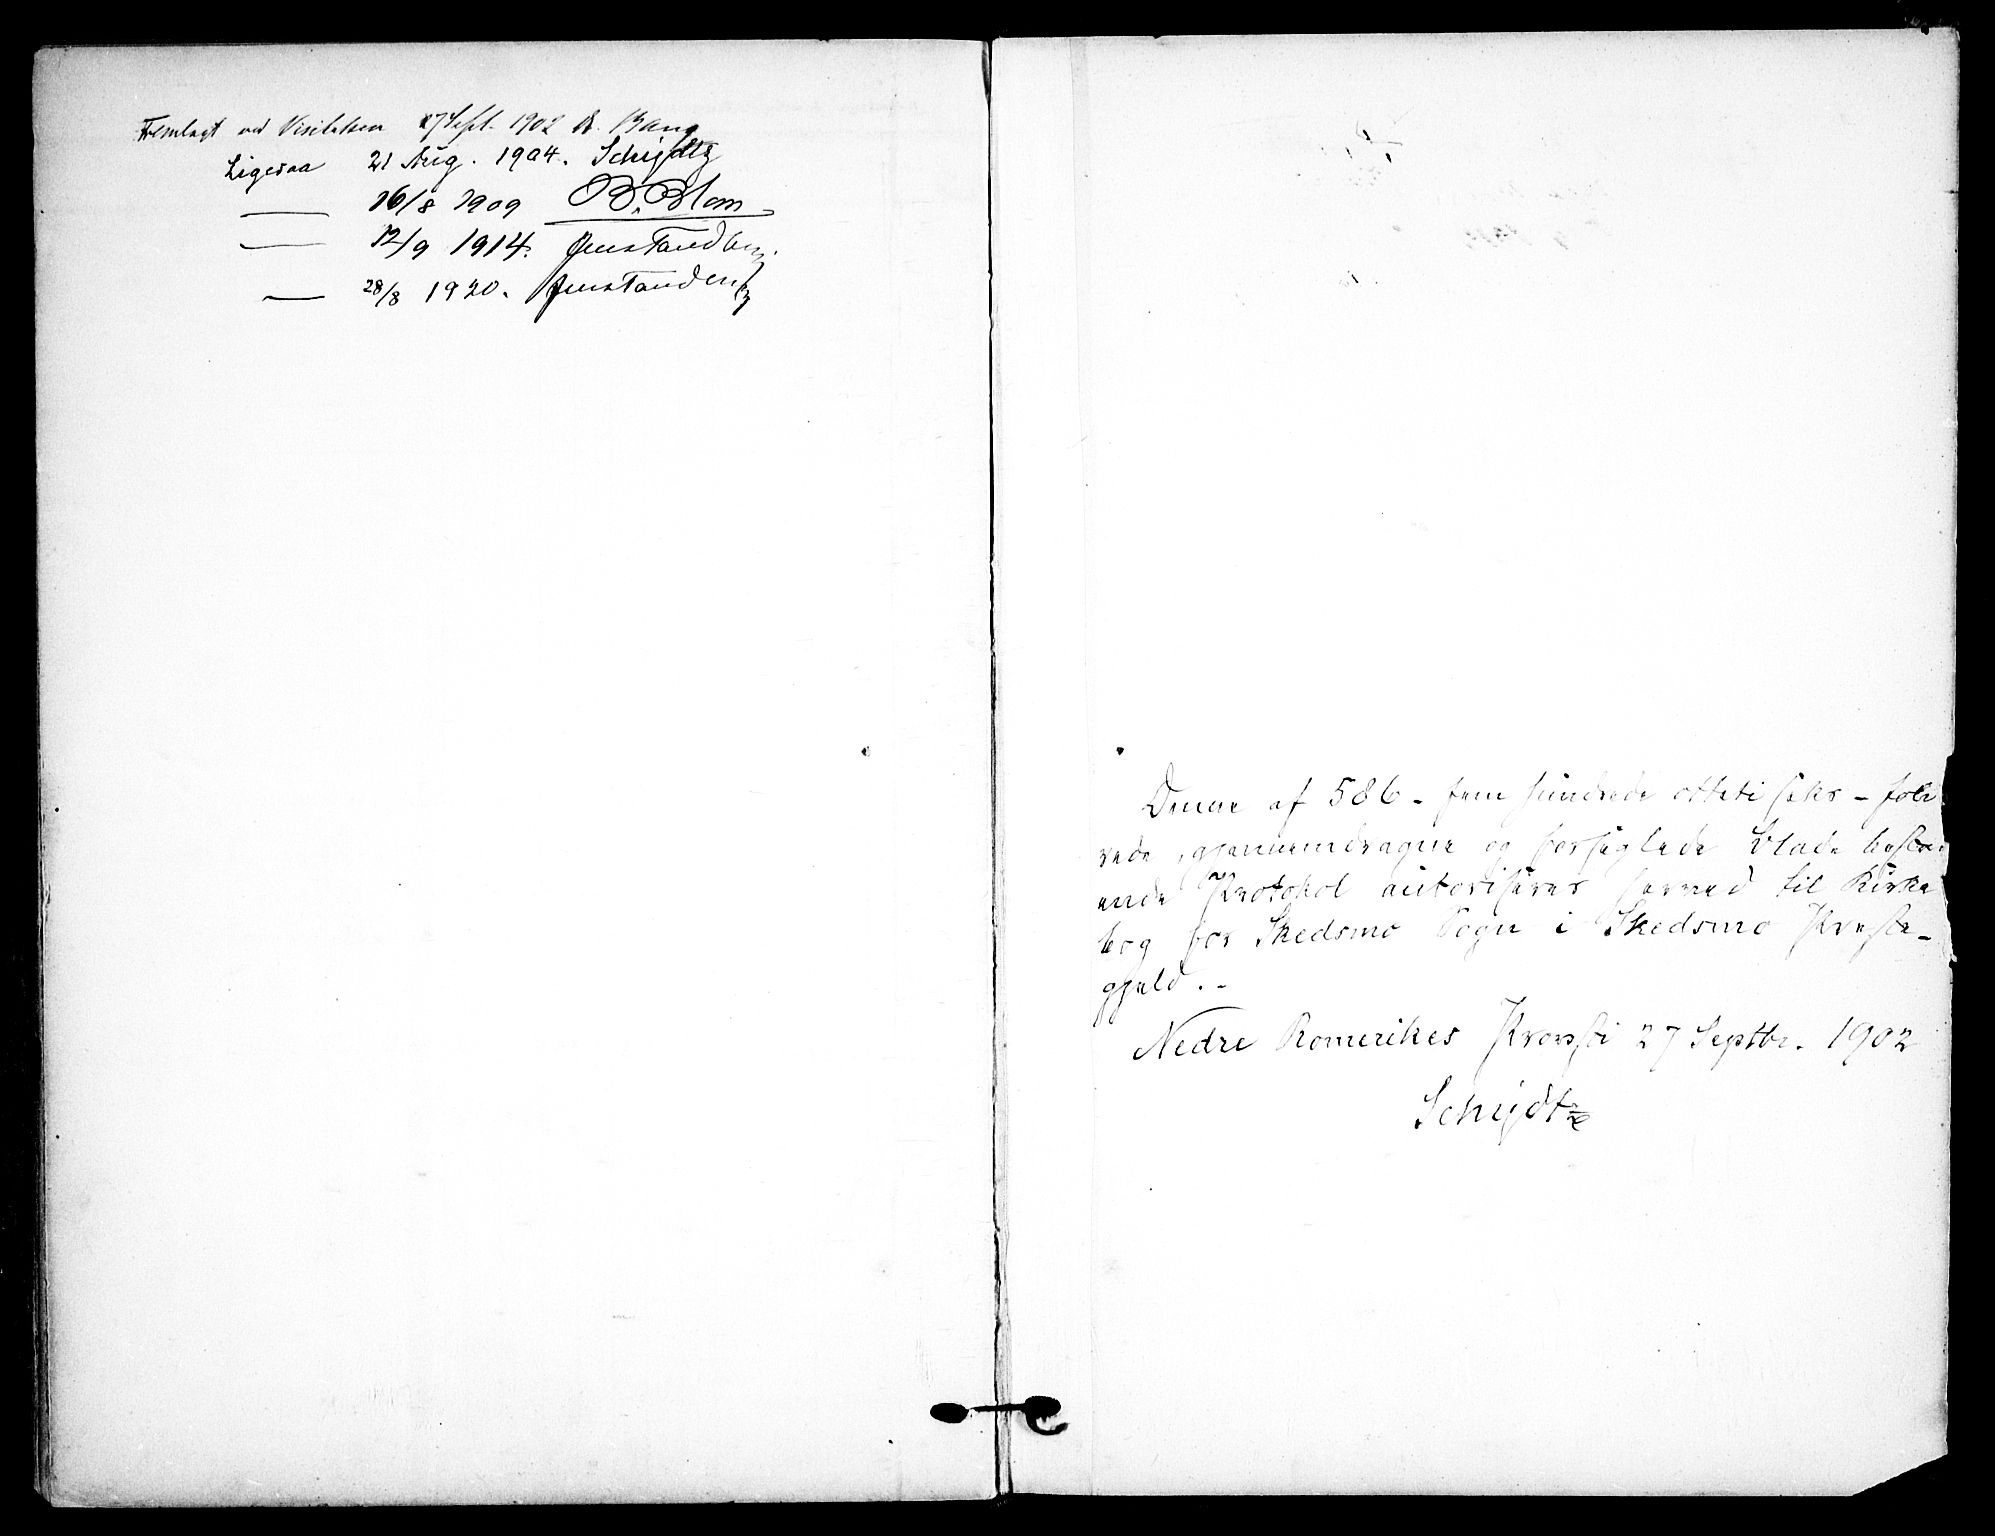 Fremlagt ved Visitatsen 27 Sept. 1902 A. Bang
Ligesaa 21 Aug. 1904. Schydtz
— 16/8 1909 B. Blom
— 12/9 1914. Jens Tandberg.
— 28/8 1920. Jens Tandberg
Denne af 586 - fem hundrede otteti seks - foli
rede, gjennemdragne og forseglede Blade bestaa
ende Protokol autoriseres herved til Kirke
bog for Skedsmo Sogn i Skedsmo Præste-
gjeld. -
Nedre Romerikes Provsti 27 Septbr. 1902
Schydtz